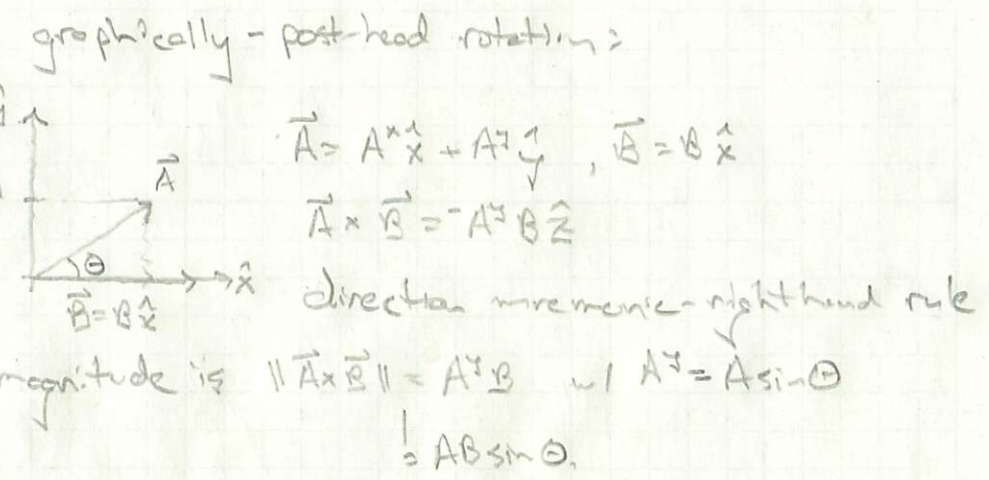 graphically - post-head rotation:
ŷ
A⃗ = Aˣ x̂ + Aʸ ŷ , B⃗ = B x̂
A⃗
A⃗ × B⃗ = -Aʸ B ẑ
θ
x̂
direction mnemonic - right hand rule
B⃗ = B x̂
magnitude is ‖A⃗ × B⃗‖ = Aʸ B w/ Aʸ = A sin θ
= AB sin θ.